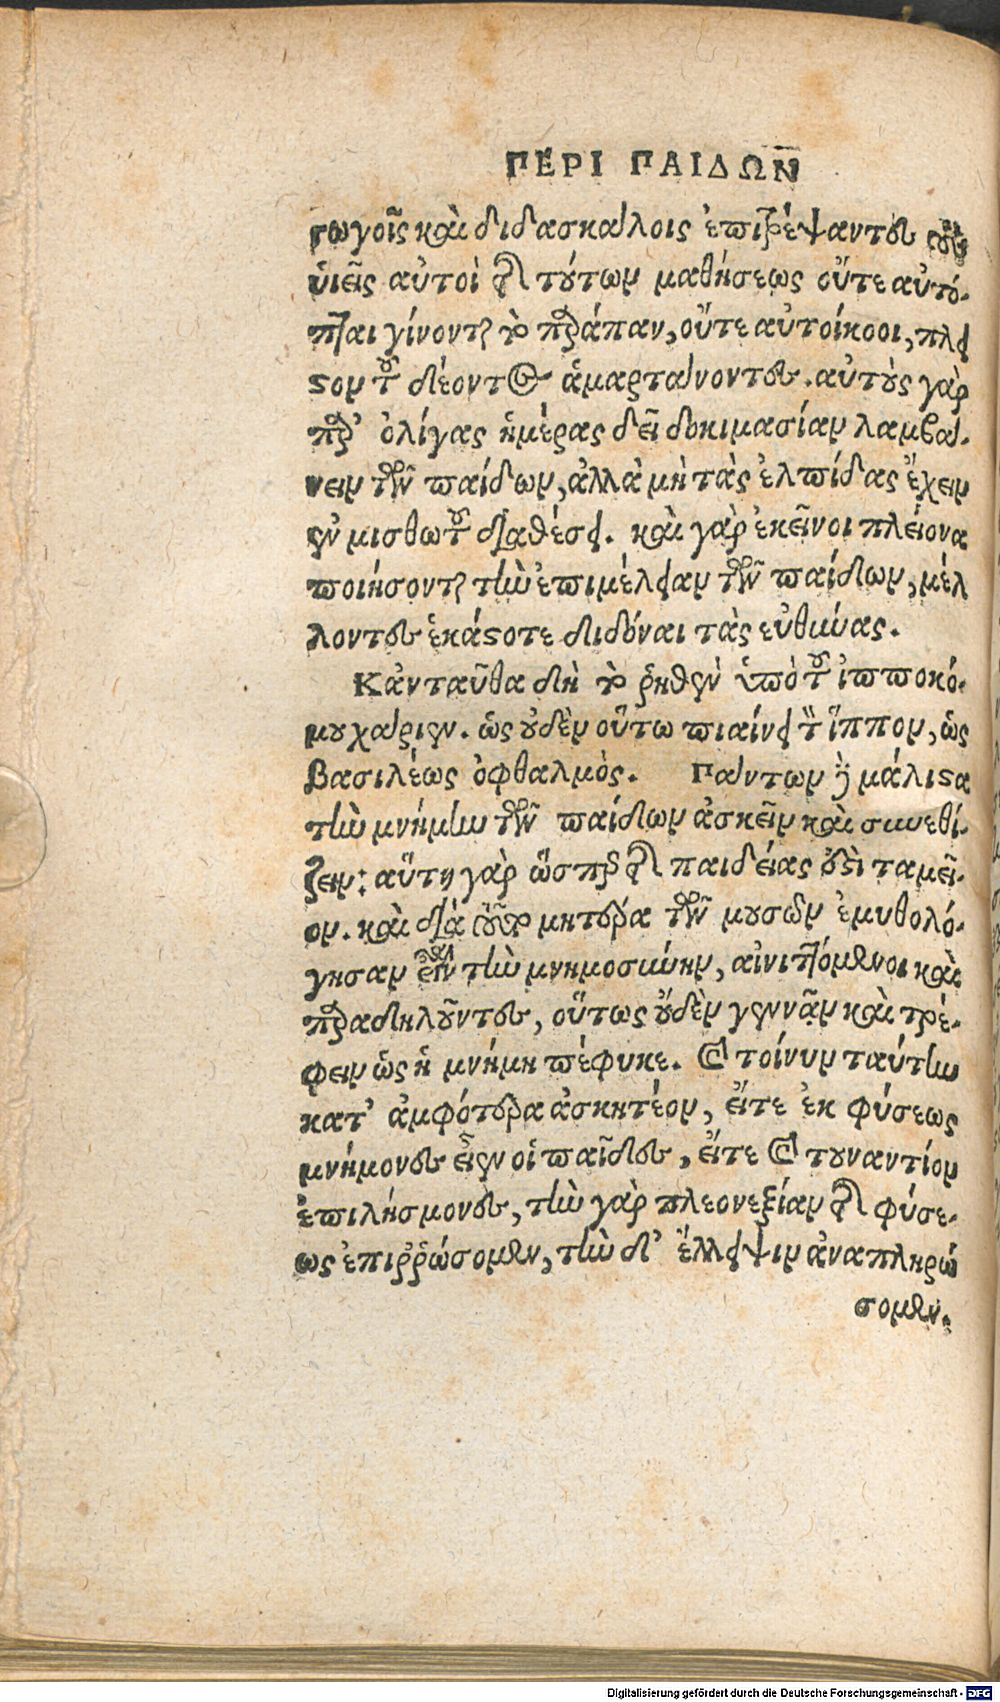 ΠΕΡΙ ΠΑΙΔΩΝ
γωγοῖς καὶ διδασκάλοις ἐπιτρέψαντες τοὺς
ὑιεῖς αὐτοὶ τῆς τούτων μαθήσεως οὔτε αὐτό-
πται γίνονται τὸ παράπαν, οὔτε αὐτοίκοοι, πλεῖ
στον τοῦ δέοντος ἁμαρτάνοντες. αὐτοὺς γὰρ
παρ' ὀλίγας ἡμέρας δεῖ δοκιμασίαν λαμβά-
νειν τῶν παίδων, ἀλλὰ μὴ τὰς ἐλπίδας ἔχειν
ἐν μισθωτοῦ διαθέσει. καὶ γὰρ ἐκεῖνοι πλείονα
ποιήσονται τὴν ἐπιμέλειαν τῶν παίδων, μέλ
λοντες ἑκάστοτε διδόναι τὰς εὐθύνας.
Κἀνταῦθα δὴ τὸ ῥηθὲν ὑπὸ τοῦ ἱπποκό-
μου χάριεν. ὡς οὐδὲν οὕτω πιαίνει τὸν ἵππον, ὡς
βασιλέως ὀφθαλμός. Πάντων δὲ μάλιστα
τὴν μνήμην τῶν παίδων ἀσκεῖν καὶ συνεθί-
ζειν: αὕτη γὰρ ὥσπερ τῆς παιδείας ἐστὶ ταμεῖ-
ον. καὶ διὰ τοῦτο μητέρα τῶν μουσῶν ἐμυθολό-
γησαν εἶναι τὴν μνημοσύνην, αἰνιττόμενοι καὶ
παραδηλοῦντες, οὕτως οὐδὲν γεννᾶν καὶ τρέ-
φειν ὡς ἡ μνήμη πέφυκε. καὶ τοίνυν ταύτην
κατ' ἀμφότερα ἀσκητέον, εἴτε ἐκ φύσεως
μνήμονες εἶεν οἱ παῖδες, εἴτε καὶ τοὐναντίον
ἐπιλήσμονες, τὴν γὰρ πλεονεξίαν τῆς φύσε-
ως ἐπιῤῥώσομεν, τὴν δ' ἔλλειψιν ἀναπληρώ
σομεν.
Digitalisierung gefördert durch die Deutsche Forschungsgemeinschaft - DFG